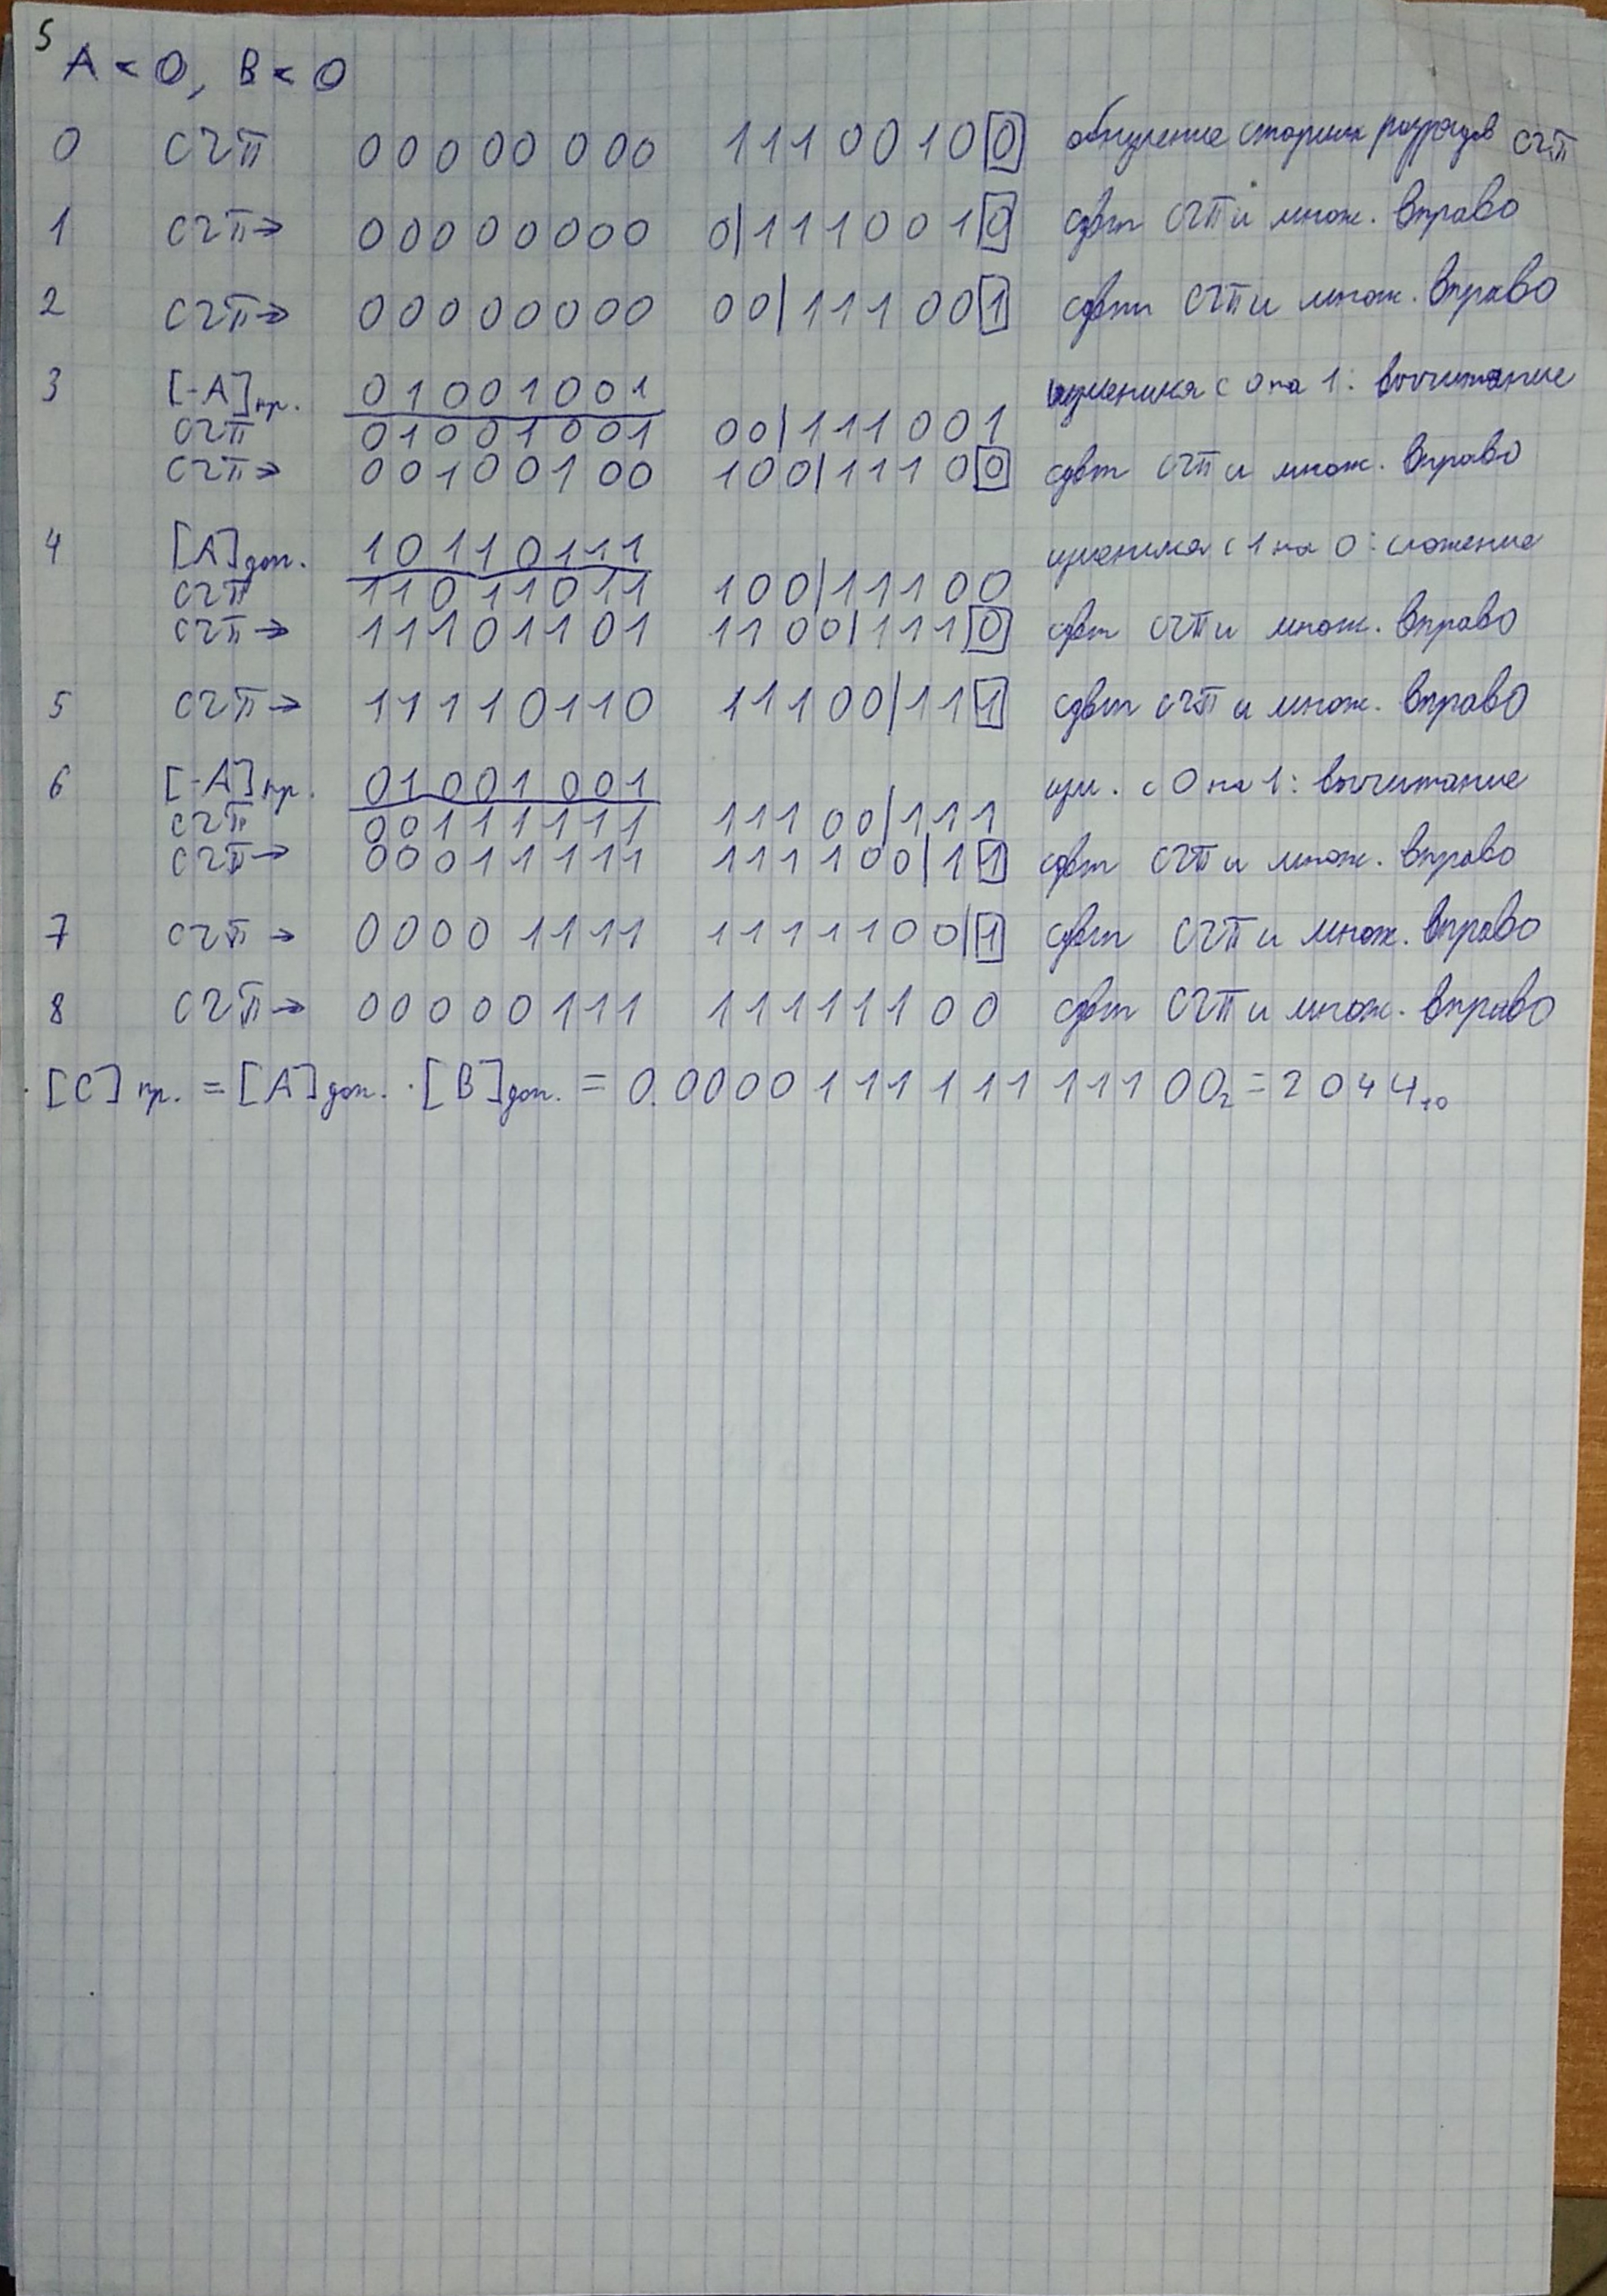 5
A < 0, B < 0
0 СЧП 00000000 11100100 обнуление старших разрядов СЧП
1 СЧП→ 00000000 0|1110010 сдвиг СЧП и множ. вправо
2 СЧП→ 00000000 00|111001 сдвиг СЧП и множ. вправо
3 [-A]пр. 01001001 изменился с 0 на 1: вычитание
СЧП 01001001 00|111001
СЧП→ 00100100 100|11100 сдвиг СЧП и множ. вправо
4 [A]доп. 10110111 изменился с 1 на 0: сложение
СЧП 11011011 100|11100
СЧП→ 11101101 1100|1110 сдвиг СЧП и множ. вправо
5 СЧП→ 11110110 11100|111 сдвиг СЧП и множ. вправо
6 [-A]пр. 01001001 изм. с 0 на 1: вычитание
СЧП 00111111 11100|111
СЧП→ 00011111 111100|11 сдвиг СЧП и множ. вправо
7 СЧП→ 00001111 1111100|1 сдвиг СЧП и множ. вправо
8 СЧП→ 00000111 11111100 сдвиг СЧП и множ. вправо
[C]пр. = [A]доп. · [B]доп. = 0.000011111111100₂ = 2044₁₀